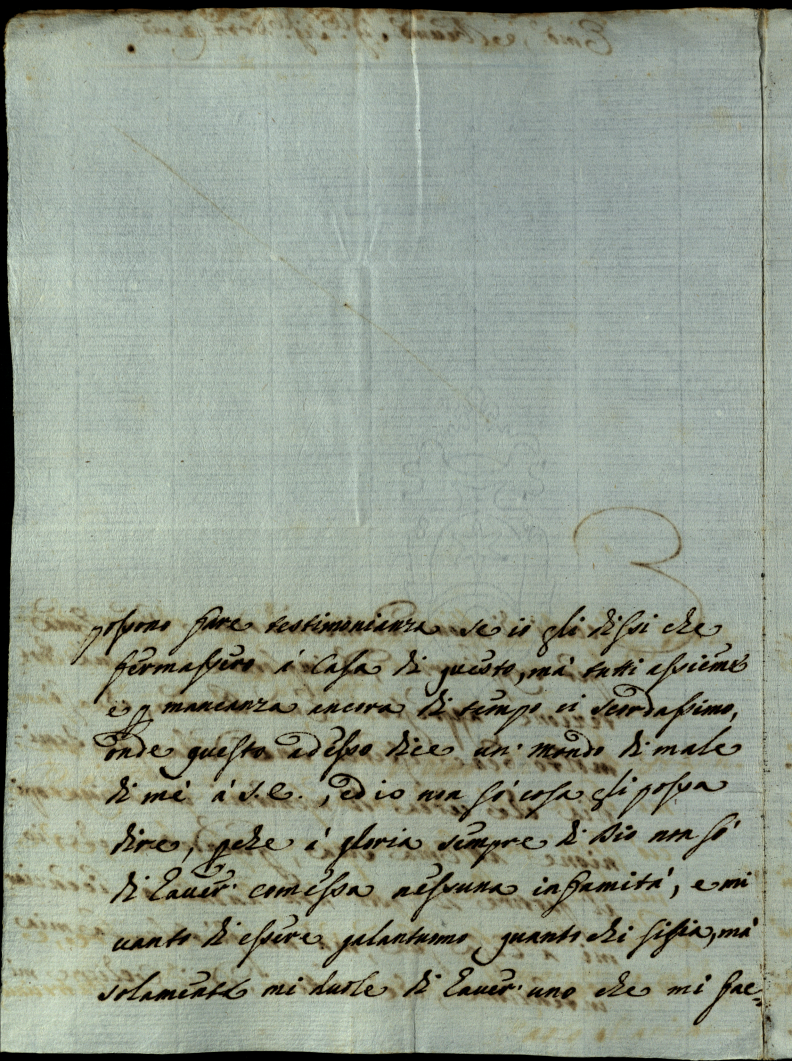 possono fare testimonianza se io gli dissi che
fermassero à Casa di questo, mà tutti assieme
e p mancanza ancora di tempo ci scordassimo,
onde questo adesso dice un mondo di male
di mé à S.E., ed io non só cosa gli possa
dire, pche à gloria sempre di Dio non só
di haver comessa nessuna infamitá, e mi
vanto di essere galantuomo quanto chi sisia, má
solamente mi duole di haver uno che mi fac=